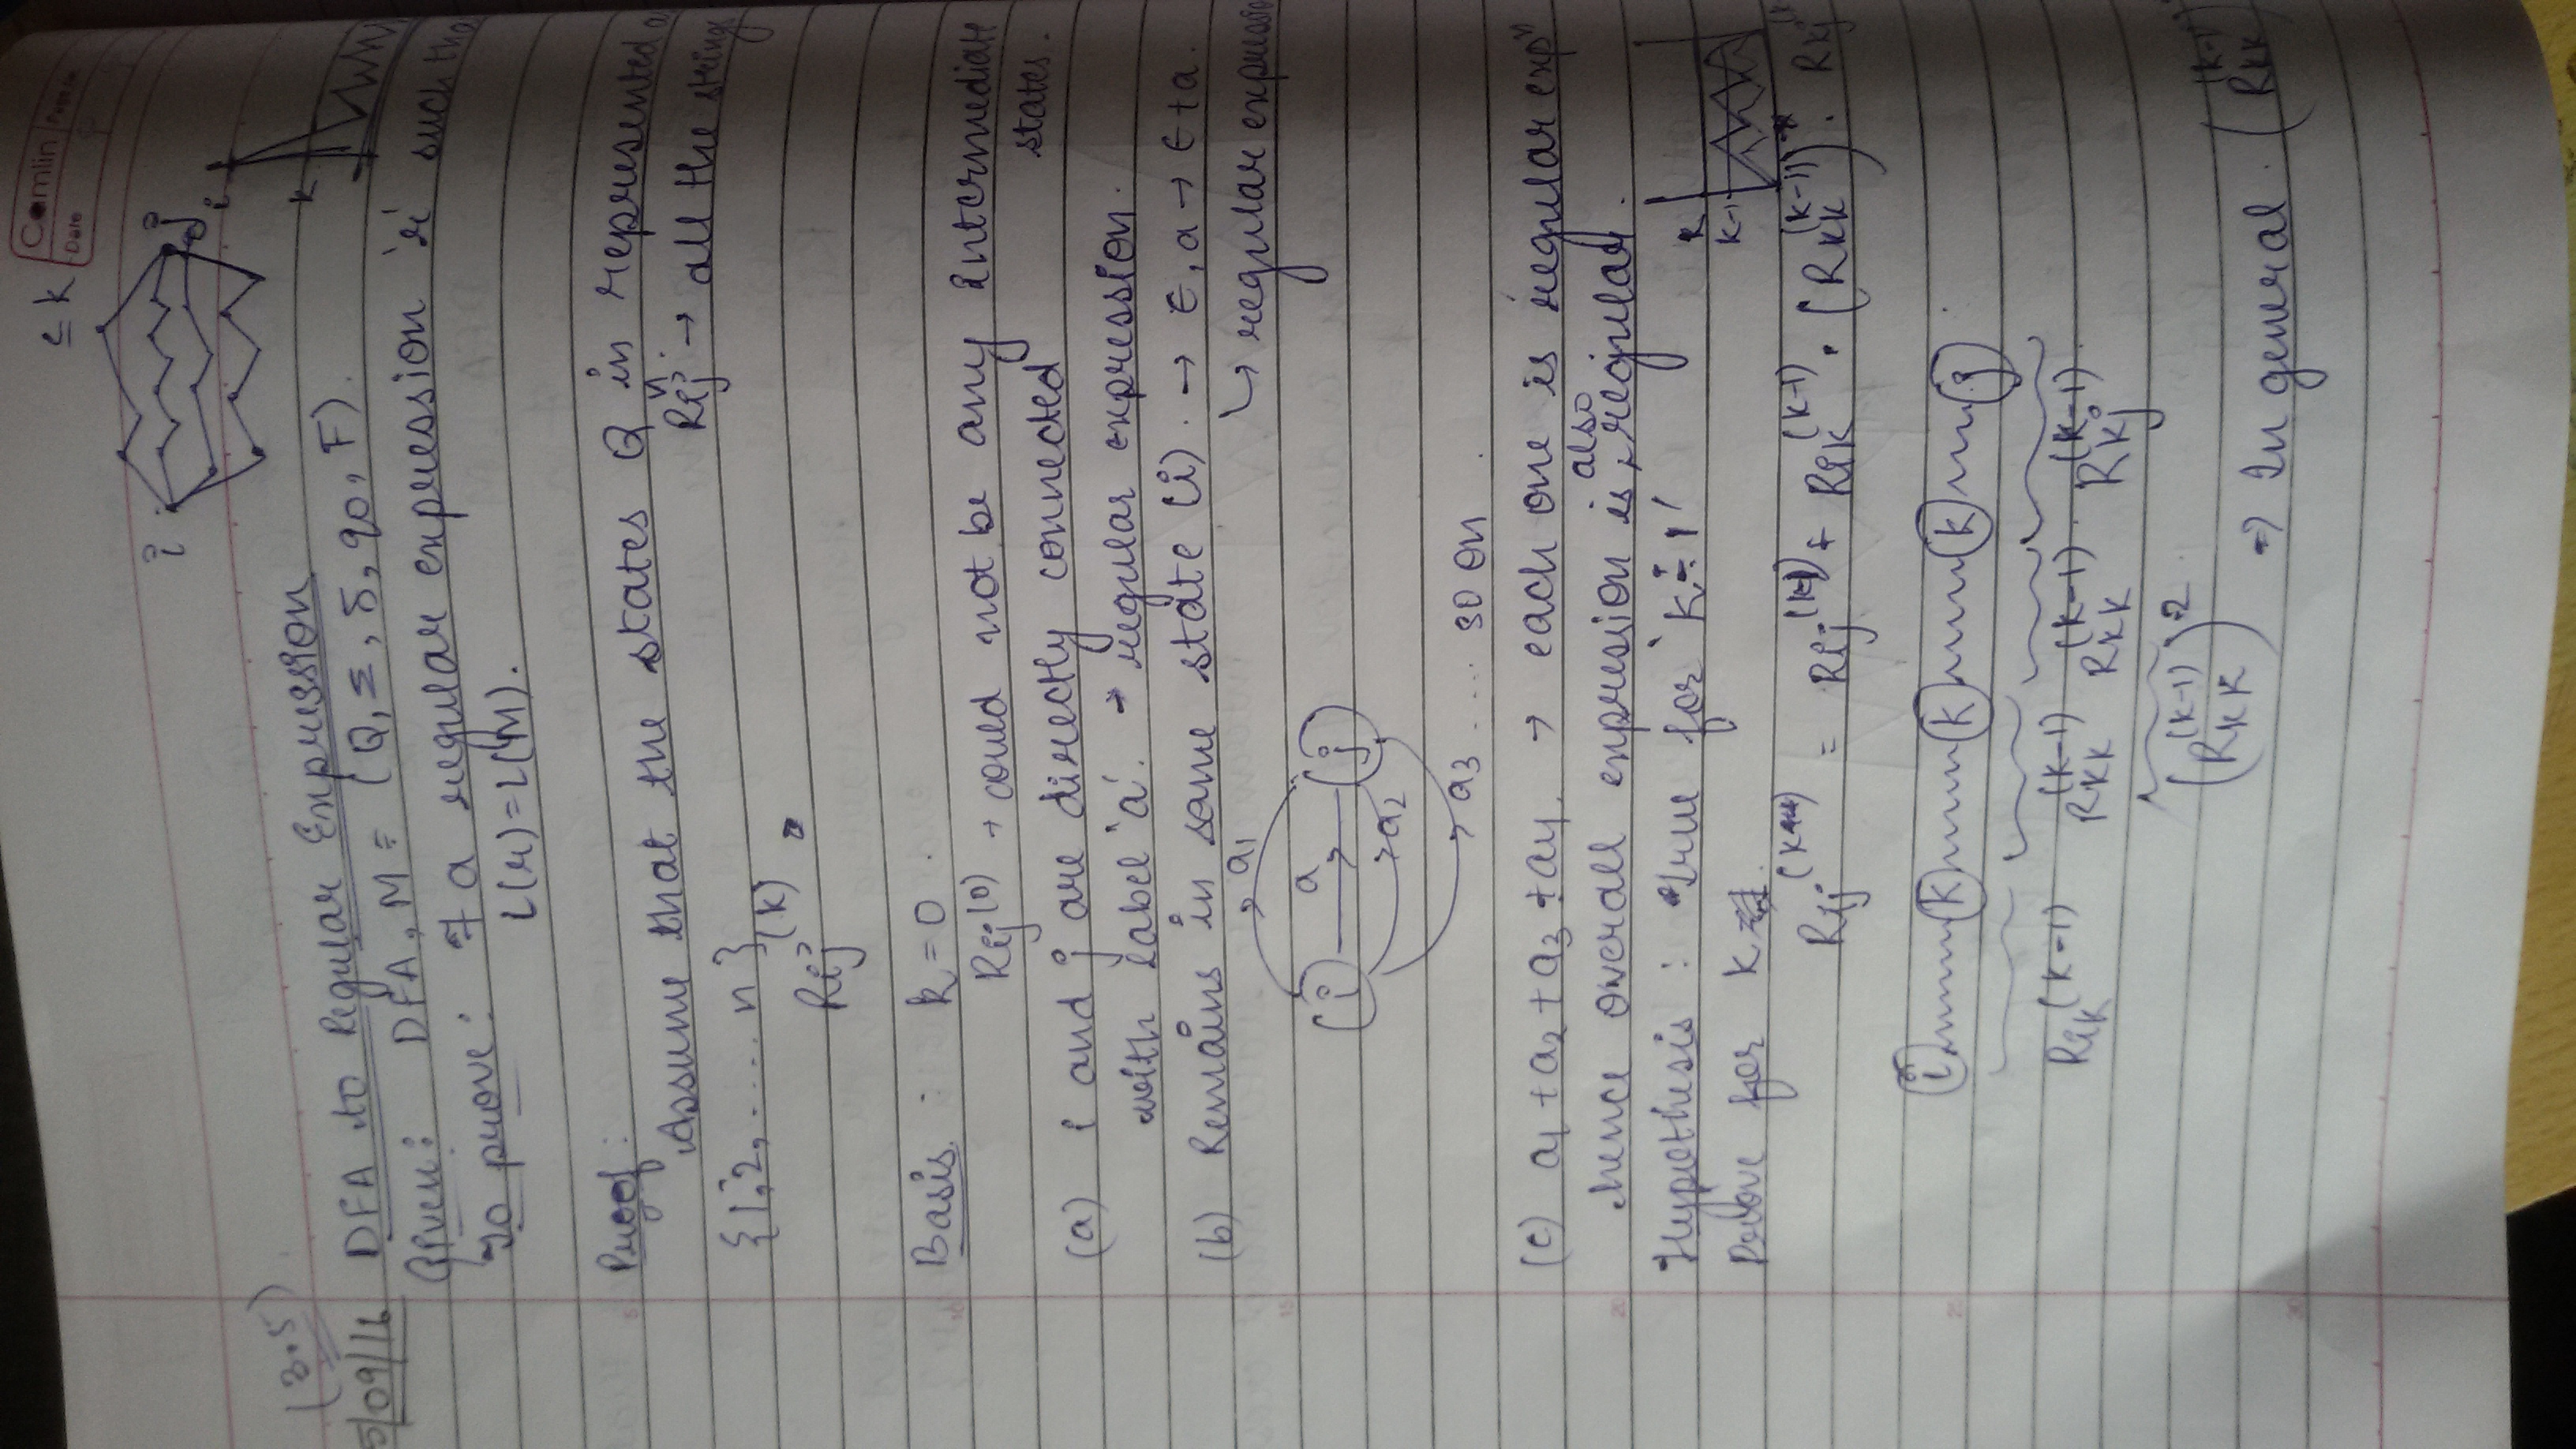 Camlin
Page No.
Date
≤ k
i
j
i
k
(3.5)
5/09/16
DFA to Regular Expression
Given: DFA, M = (Q, Σ, δ, q0, F).
To prove: ∃ a regular expression 'r' such tha
L(r)=L(M).
Proof:
Assume that the states Q in represented a
{1,2, ..... n}
Rij^n → all the strings
Rij^(k)
Basis : k = 0
Rij^(0) → could not be any intermediate
states.
(a) i and j are directly connected
with label 'a'. → regular expression.
(b) Remains in same state (i) → ε, a → ε+a.
↳ regular expressio
a1
i a j
a2
a3 .... so on
(c) a1 + a2 + a3 + a4. → each one is regular expn
hence overall expression is also regular.
Hypothesis : True for 'k-1'
k
k-1
Prove for k
Rij = Rij^(k-1) + Rik^(k-1) . (Rkk^(k-1))* . Rkj^(k
i k k k j
Rik^(k-1) Rkk^(k-1) Rkk^(k-1) Rkj^(k-1)
(Rkk^(k-1))^2
⇒ In general (Rkk^(k-1)